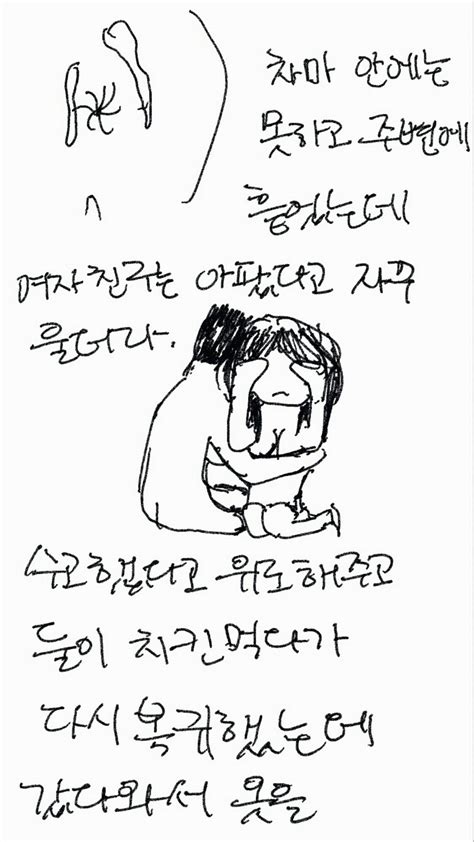 차마 안에는
못하고 주변에
흝었는데
여자친구는 아팠다고 자꾸
울더라.
수고했다고 위로해주고
둘이 치킨먹다가
다시 복귀했는데
갔다와서 옷을